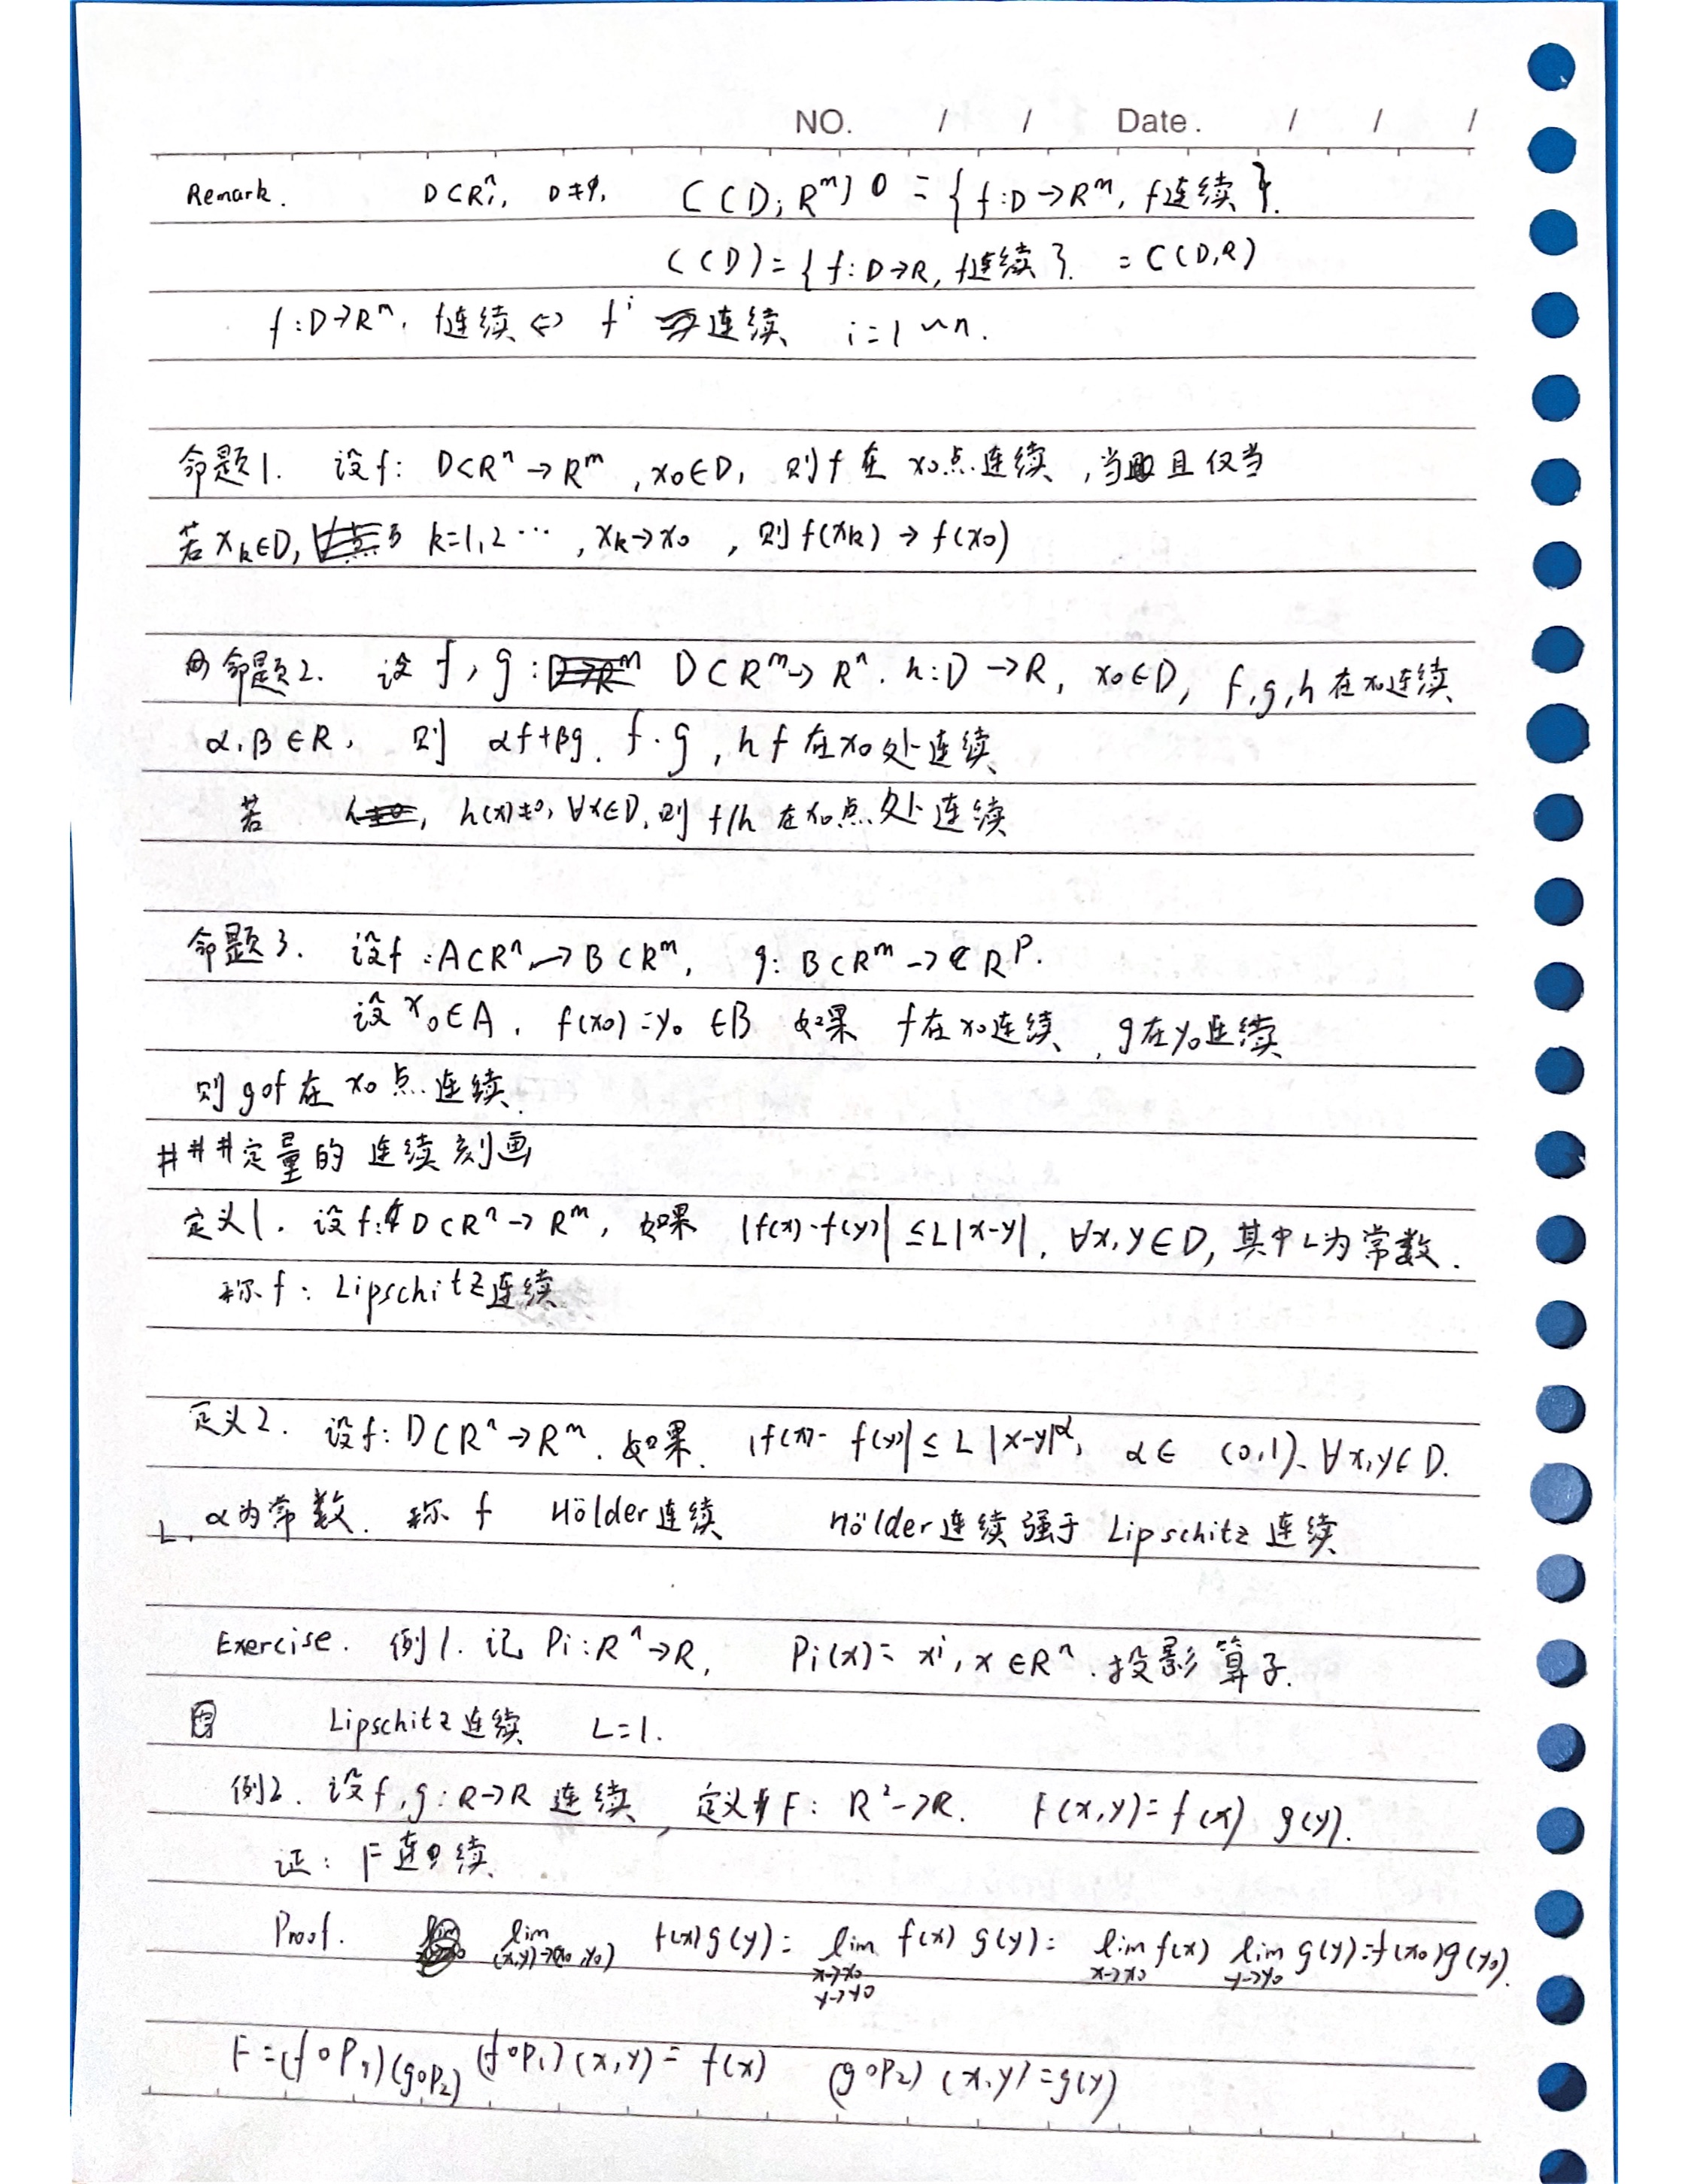 NO. / / Date. / / /
Remark. D⊂Rⁿ, D≠φ, C(D;Rᵐ) = {f:D→Rᵐ, f连续}.
C(D)={f:D→R, f连续}. = C(D,R)
f:D→Rᵐ, f连续 ⇔ fⁱ 连续 i=1~n.
命题1. 设f: D⊂Rⁿ→Rᵐ, x₀∈D, 则f在x₀点连续,当且仅当
若xₖ∈D, k=1,2…, xₖ→x₀, 则f(xₖ)→f(x₀)
命题2. 设f,g: D⊂Rᵐ→Rⁿ. h:D→R, x₀∈D, f,g,h在x₀连续
α,β∈R, 则 αf+βg, f·g, hf在x₀处连续
若 h(x)≠0, ∀x∈D, 则f/h在x₀点处连续
命题3. 设f:A⊂Rⁿ→B⊂Rᵐ, g: B⊂Rᵐ→Rᵖ.
设x₀∈A, f(x₀)=y₀∈B 如果 f在x₀连续, g在y₀连续
则g∘f在x₀点连续.
###定量的连续刻画
定义1. 设f: D⊂Rⁿ→Rᵐ, 如果 |f(x)-f(y)|≤L|x-y|, ∀x,y∈D, 其中L为常数.
称f: Lipschitz连续
定义2. 设f: D⊂Rⁿ→Rᵐ. 如果. |f(x)-f(y)|≤L|x-y|^α, α∈(0,1), ∀x,y∈D.
L, α为常数. 称f Hölder连续 Hölder连续强于Lipschitz连续
Exercise. 例1. 记Pi:Rⁿ→R, Pi(x)=xⁱ, x∈Rⁿ. 投影算子.
Lipschitz连续 L=1.
例2. 设f,g:R→R连续, 定义F: R²→R. F(x,y)=f(x) g(y).
证: F连续
Proof. lim (x,y)→(x₀,y₀) f(x)g(y)= lim x→x₀ y→y₀ f(x)g(y)= lim x→x₀ f(x) lim y→y₀ g(y)=f(x₀)g(y₀).
F=(f∘P₁)(g∘P₂) (f∘P₁)(x,y)=f(x) (g∘P₂)(x,y)=g(y)